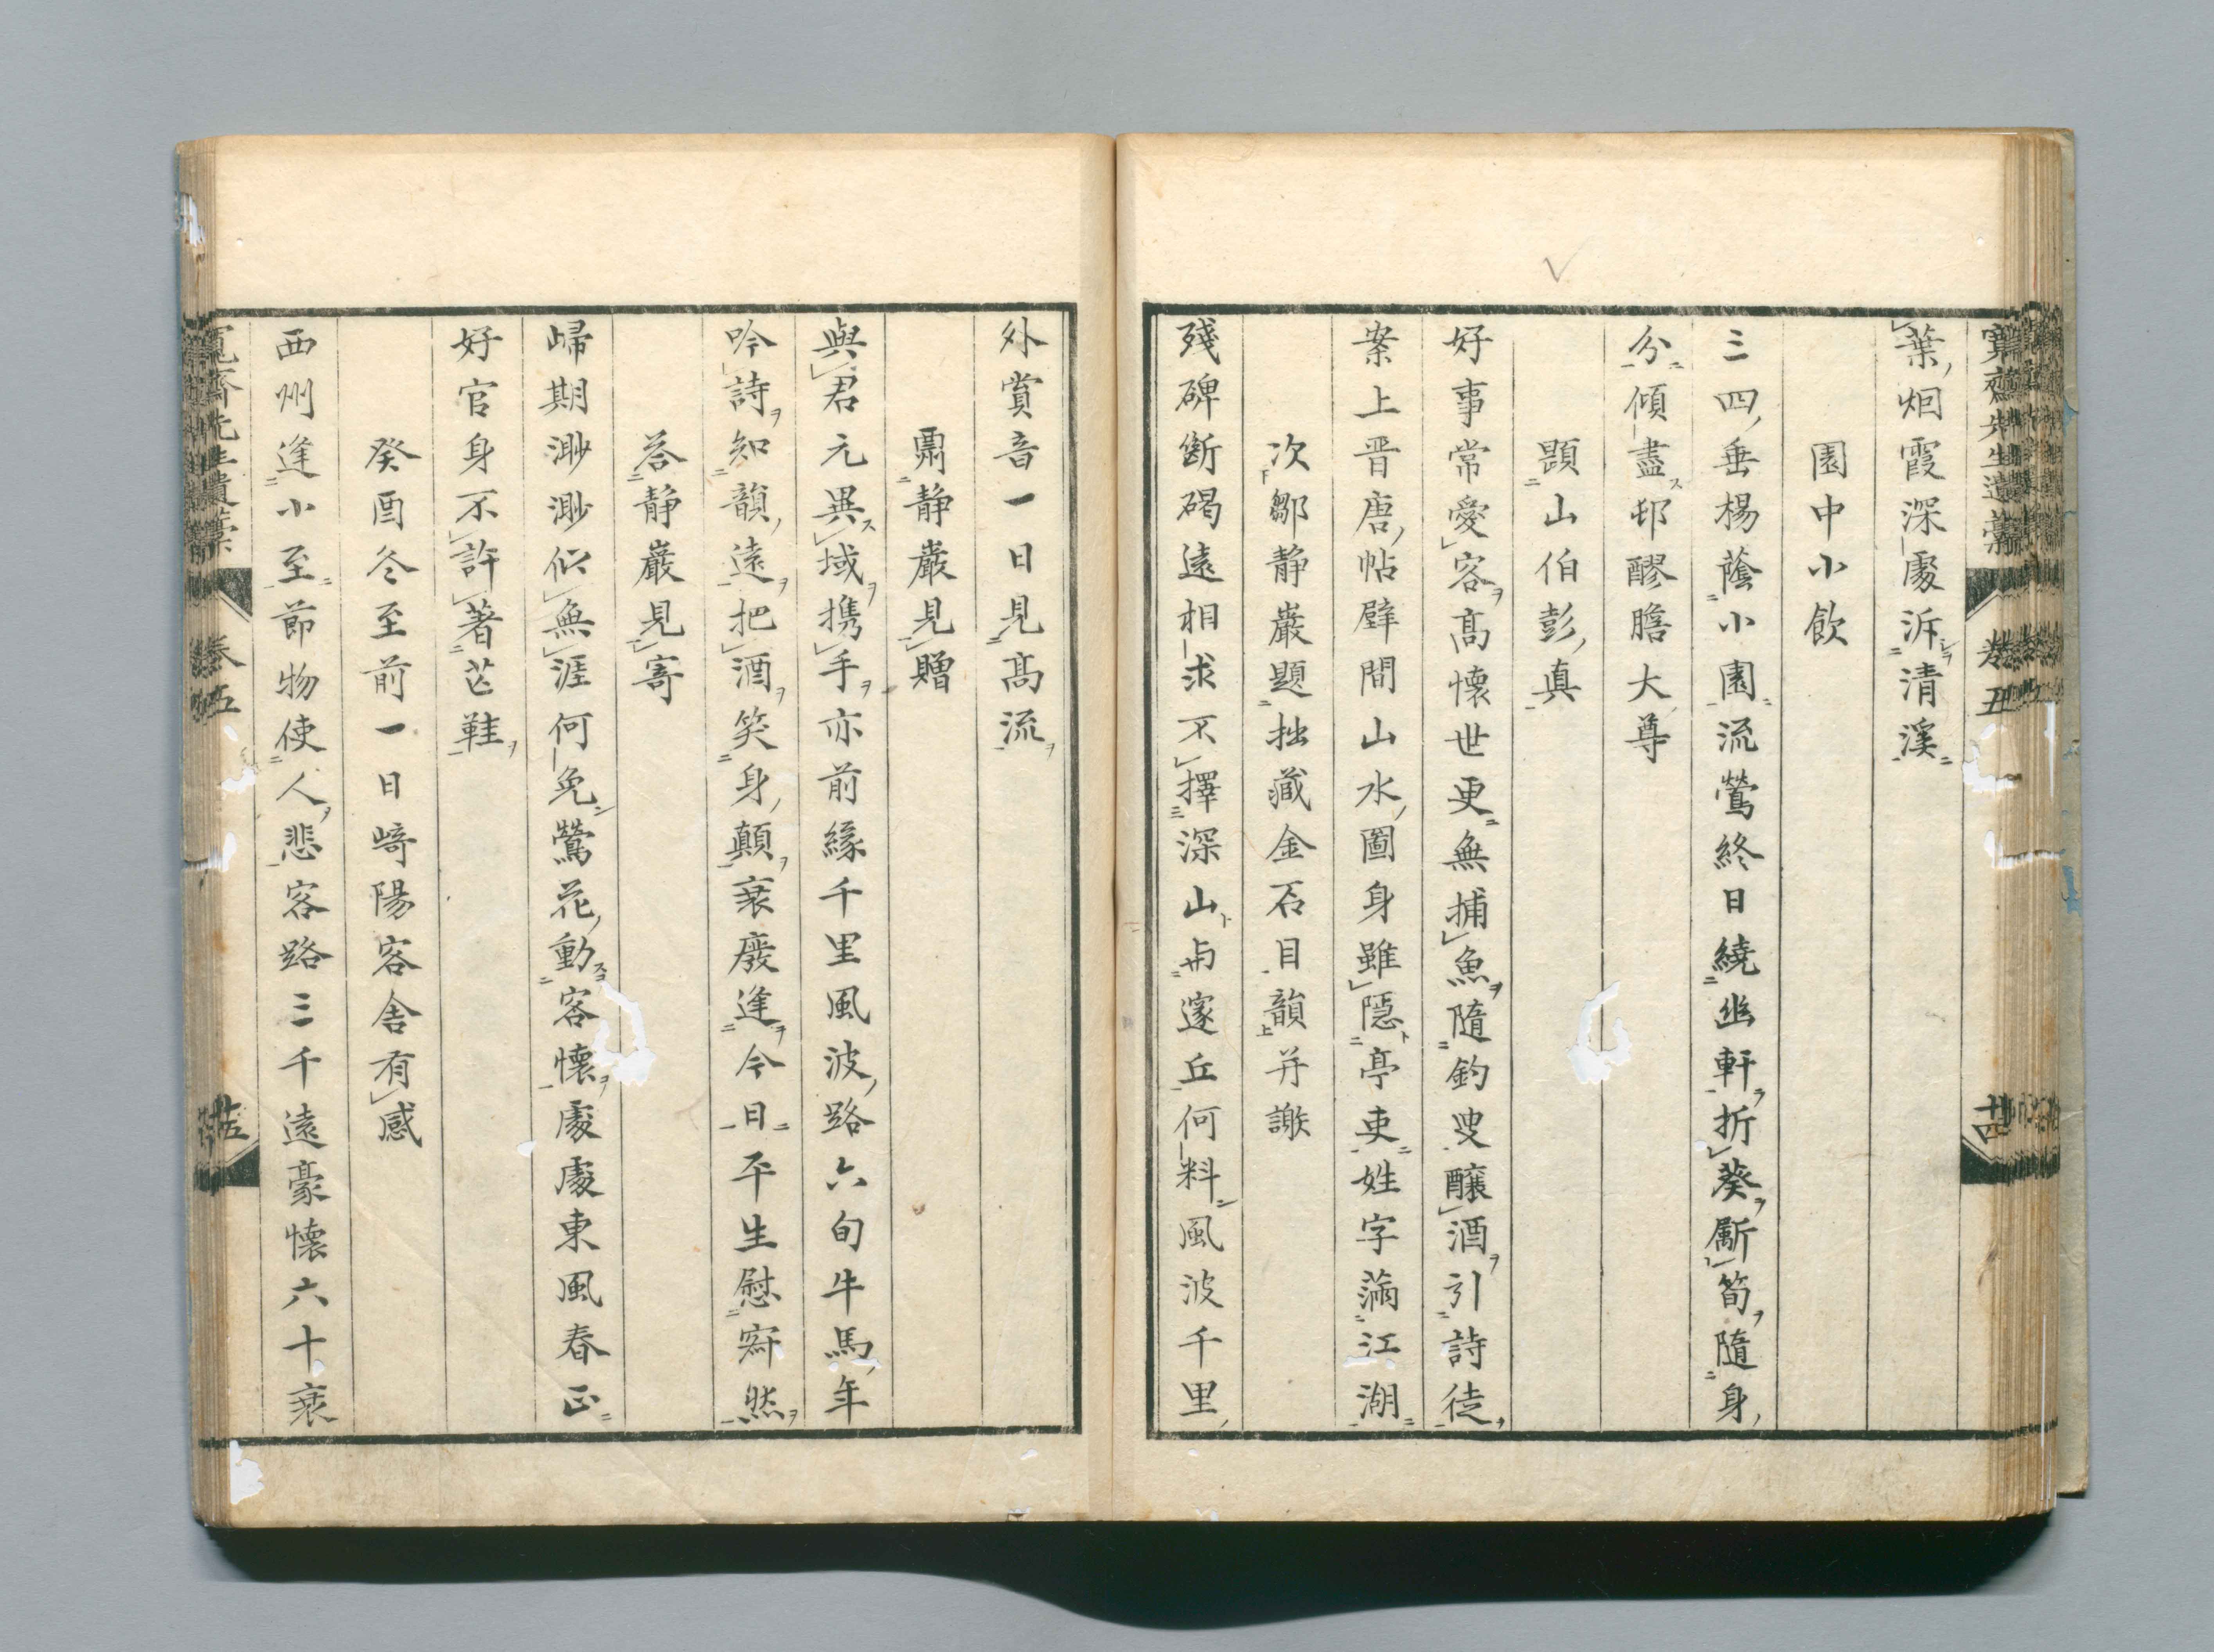 寬齋先生遺藁 卷五 廿四
葉烟霞深處泝清溪
園中小飲
三四垂楊蔭小園流鶯終日繞幽軒折葵斸筍隨身
分傾盡邨醪膽大尊
題山伯彭真
好事常愛客高懷世更無捕魚隨釣叟釀酒引詩徒
案上晋唐帖壁間山水圖身雖隱亭吏姓字滿江湖
次鄒静巖題拙藏金石目韻并謝
殘碑斷碣遠相求不擇深山与邃丘何料風波千里
外賞音一日見髙流
酬静巖見贈
與君元異域携手亦前緣千里風波路六旬牛馬年
吟詩知韻遠把酒笑身顛衰廢逢今日平生慰寂然
荅静巖見寄
歸期渺渺似無涯何免鶯花動客懷處處東風春正
好官身不許著芒鞋
癸酉冬至前一日﨑陽客舎有感
西州逢小至節物使人悲客路三千遠豪懷六十衰
寬齋先生遺藁 卷五 廿五